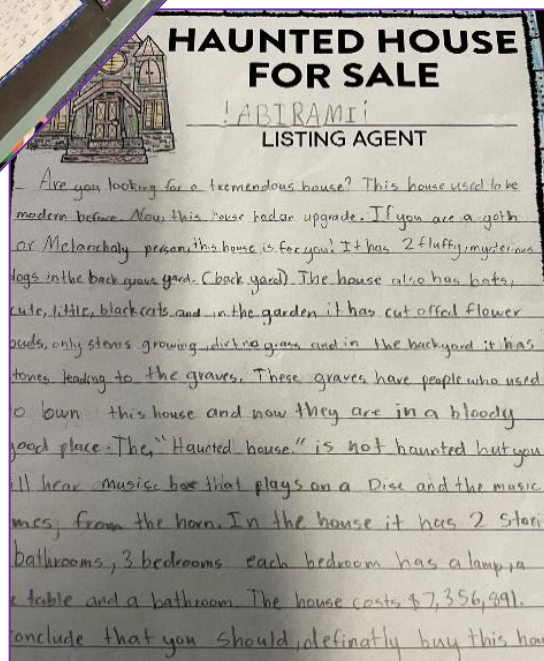 HAUNTED HOUSE
FOR SALE
! ABIRAMI¡
LISTING AGENT
Are you looking for a tremendous house? This house used to be
modern before. Now, this house had an upgrade. If you are a goth
or Melancholy person, this house is for you! It has 2 fluffy, mysterious
dogs in the back grave yard. (back yard). The house also has bats,
cute, little, black cats, and in the garden it has cut offed flower
buds, only stems growing, dirt no grass and in the backyard it has
tones leading to the graves. These graves have people who used
o own this house and now they are in a bloody
good place. The, "Haunted house." is not haunted but you
ill hear music box that plays on a Disc and the music
mes, from the horn. In the house it has 2 Stori
bathrooms, 3 bedrooms each bedroom has a lamp, a
table and a bathroom. The house costs $7,356,891.
onclude that you should, definatly buy this hou